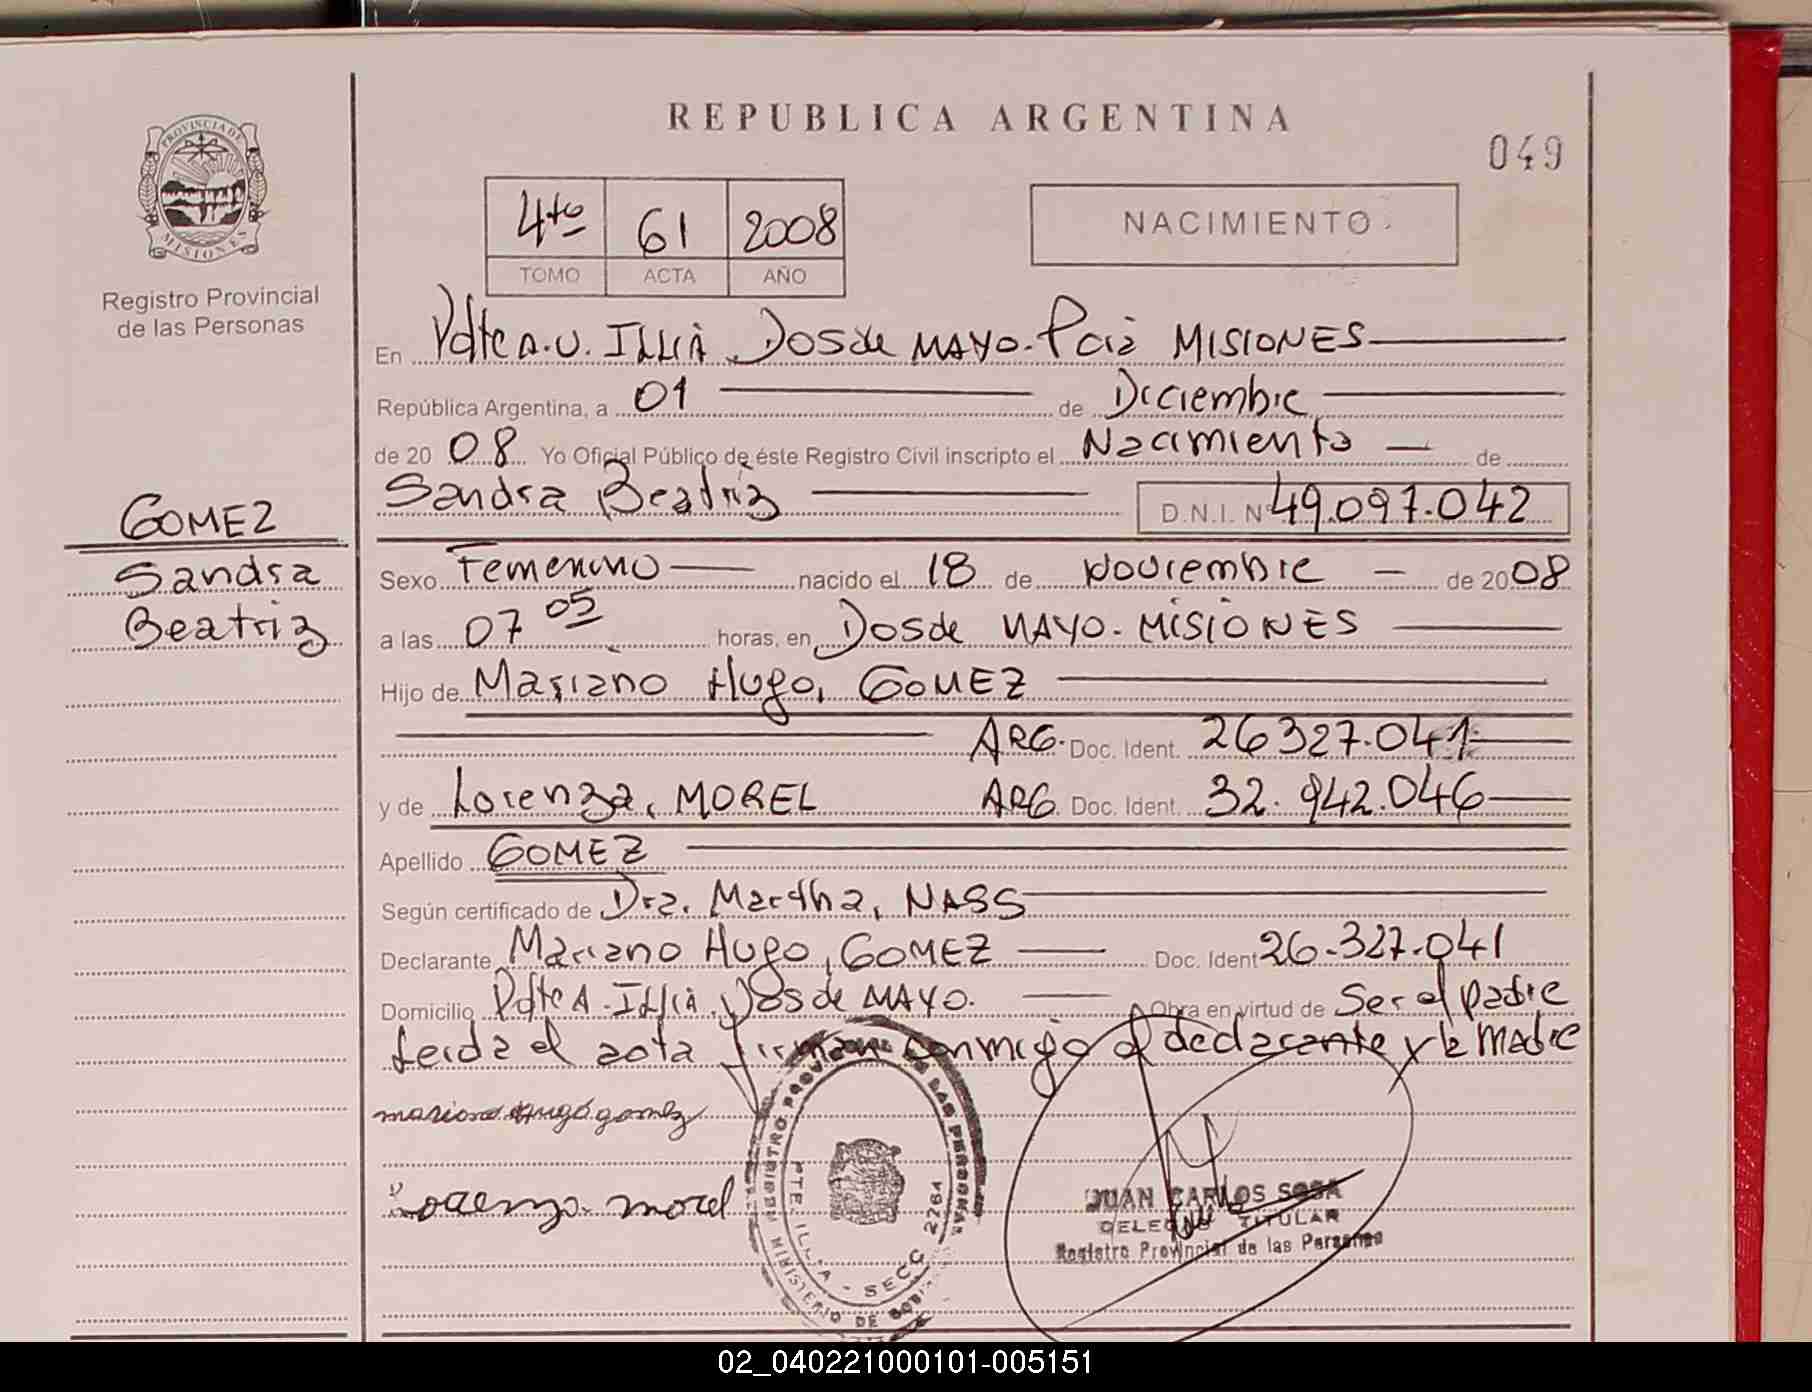 REPUBLICA ARGENTINA
049
PROVINCIA DE
MISIONES
Registro Provincial
de las Personas
4to 61 2008
TOMO ACTA AÑO
NACIMIENTO
En Pdte A.U. ILLIA Dos de MAYO. Pcia MISIONES
República Argentina, a 01 de Diciembre
de 20 08 Yo Oficial Público de éste Registro Civil inscripto el Nacimiento de
Sandra Beatriz D.N.I. Nº 49.097.042
GOMEZ
Sandra
Beatriz
Sexo Femenino nacido el 18 de Noviembre de 20 08
a las 07 05 horas, en Dos de MAYO. MISIONES
Hijo de Mariano Hugo, GOMEZ
ARG. Doc. Ident. 26327.041
y de Lorenza, MOREL ARG. Doc. Ident. 32.942.046
Apellido GOMEZ
Según certificado de Dra. Martha, NASS
Declarante Mariano Hugo, GOMEZ Doc. Ident 26.327.041
Domicilio Pdte A. Illia. Dos de MAYO. Obra en virtud de Ser el padre
Leida el acta firman conmigo el declarante y la madre
mariano hugo gomez
Lorenza morel
REGISTRO PROVINCIAL DE LAS PERSONAS
PTE. ILLIA - SECC 2264
MINISTERIO DE GOBI
JUAN CARLOS SOSA
DELEGADO TITULAR
Registro Provincial de las Personas
02_040221000101-005151